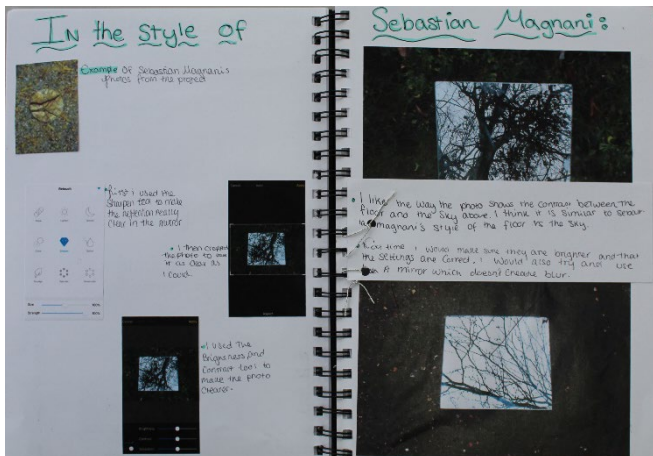 In the style of
Example of Sebastian Magnani's
photos from the project
First I used the
sharpen tool to make
the reflection really
clear in the mirror
I then cropped
the photo to use
it as clear as
I could
I used the
Brightness and
contrast tool to
make the photo
clearer.
Sebastian Magnani:
I like the way the photo shows the contrast between the
floor and the sky above. I think it is similar to
magnani's style of the floor vs the sky.
time I would make sure they are brighter and that
the settings are correct. I would also try and use
A mirror which doesn't create blur.